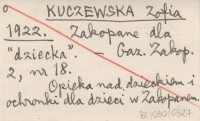 KUCZEWSKA Zofia
1922. Zakopane dla
"dziecka". — Gaz. Zakop.
2, nr 18.
Opieka nad dzieckiem i
ochronki dla dzieci w Zakopanem.